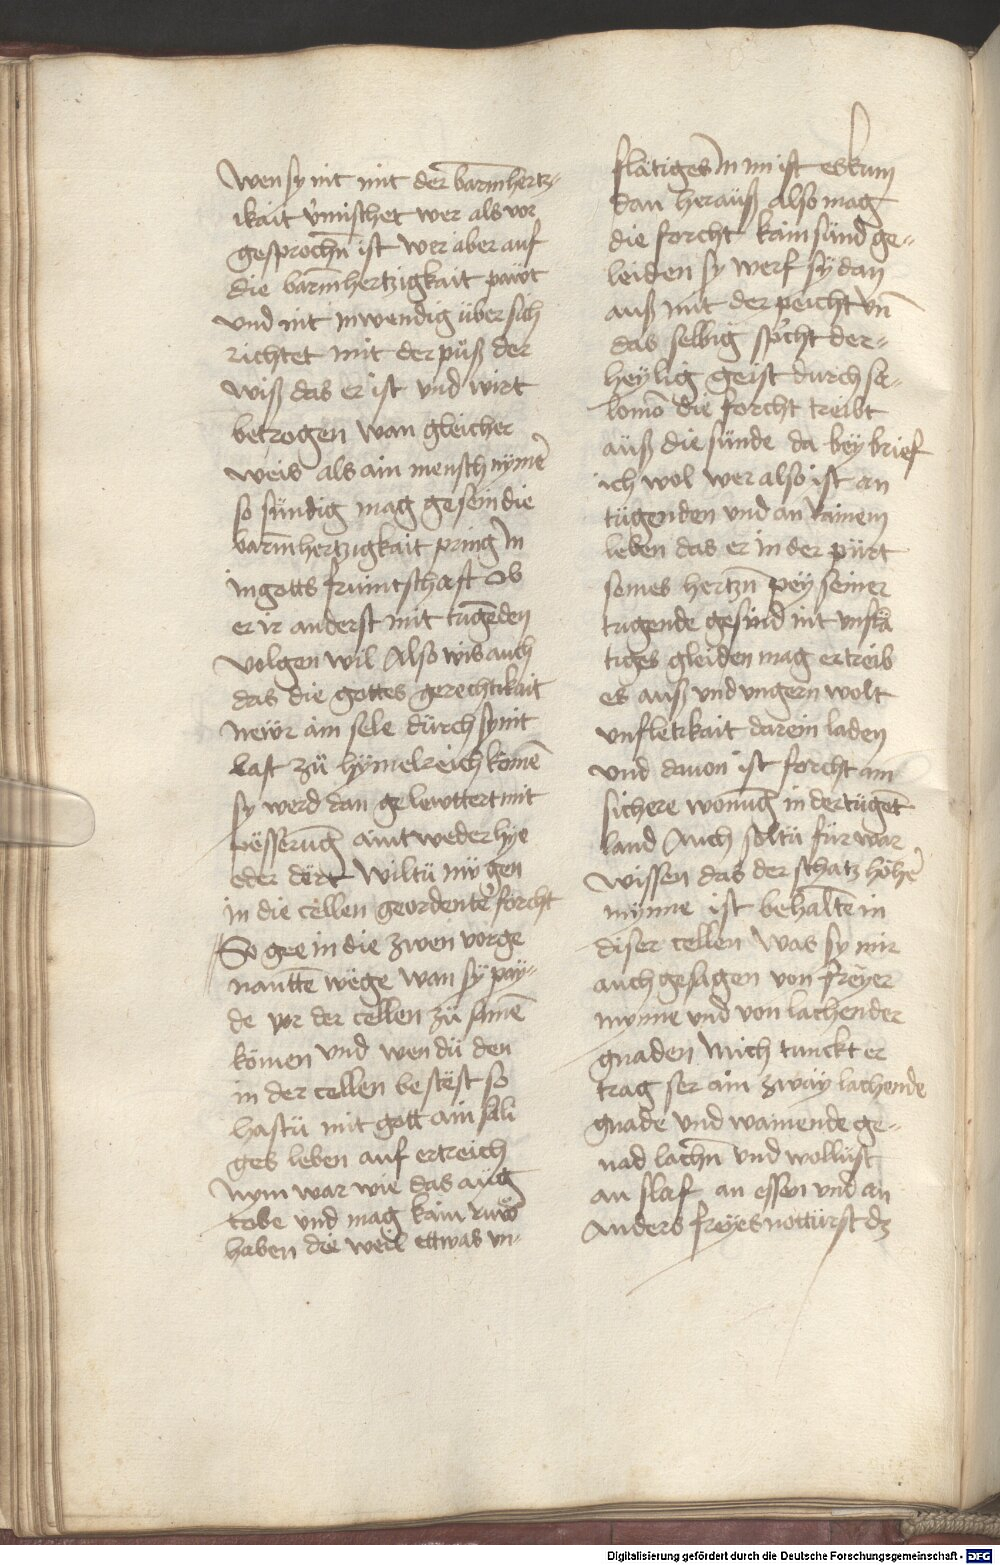 Wen sy nit mit der barm̄hertz-
ikait v̓mischet wer als vor
gesprochn̄ ist Wer aber auf
die barm̄hertzigkait pawt
vnd nit inwendig über sich
richtet mit der püß der
wiß das er ist vnd wirt
betrogen wan gleicher
weis als ain mensch nymer̄
so sündig mag gesein die
barm̄hertzigkait pring in
in gotts fruintschaft ob
er ir anderst mit tugēden
volgen wil Also wis auch
das die gottes gerechtikait
newr ain sele dürch sy nit
last zü hymelreich komē
sy werd dan gelewttert mit
pesserūg aintweder hye
oder dört Wiltü mügen
in die cellen geordenter̄ forcht
So gee in die zwen vorge
nantē wege wan sy pay-
de vor der cellen zü samē
komen vnd wen dü den
in der cellen bestest so
hastü mit gott ain säli
ges leben auf ertreich
Nym war wie das aüg
tobe vnd mag kain rüw
haben die weil ettwas vn-
flätiges in im ist es kum
dan herauß also mag
die forcht kain sünd ge-
leiden sy werf sy dan
auß mit der peicht vn̄
das selbig spricht der-
heylig geist durch sa-
lomō die forcht treibt
auß die sünde da bey brief
ich wol wer also ist an
tügenden vnd an rainem
leben das er in der pürt
seines hertzn̄ pey seiner
tugende gesind nit vnflä
tiges gleiden mag er treib
es auß vnd vngern wolt
vnfletikait darein laden
vnd dauon ist forcht ain
sichere wonūg in der tügēt
land Auch soltü für war
wissen das der schatz hoher̄
mynne ist behaltē in
diser cellen Was sy mir
auch gesagen von freyer
mynne vnd von lachender
gnaden Mich tunckt er
trag ser ain zway lachende
gnade vnd wainende ge-
nad lachn̄ vnd wollust
an slaf an essen vnd an
anders freyes notturft dz
Digitalisierung gefördert durch die Deutsche Forschungsgemeinschaft - DFG